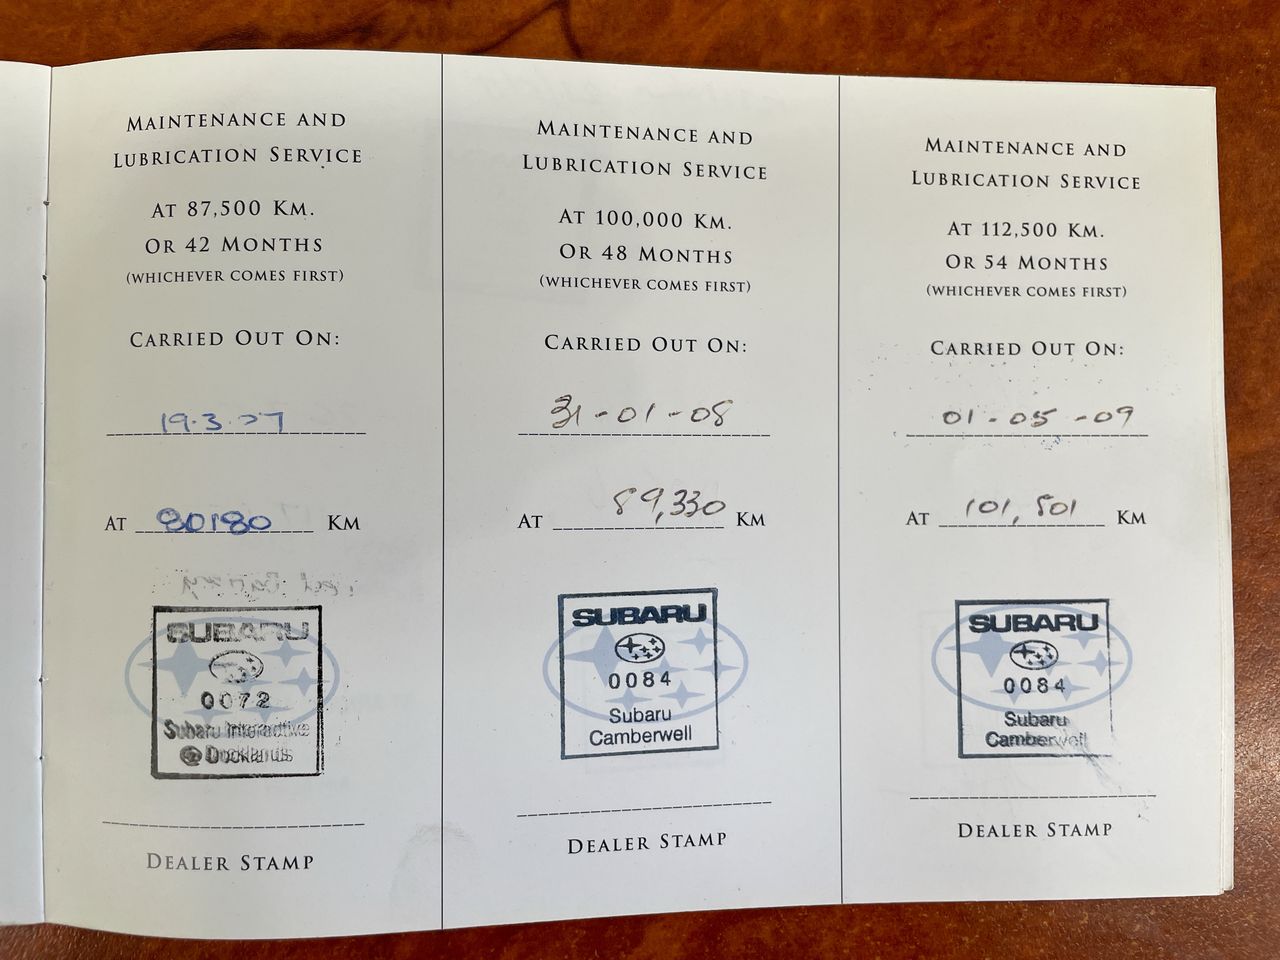 MAINTENANCE AND
LUBRICATION SERVICE
AT 87,500 KM.
OR 42 MONTHS
(WHICHEVER COMES FIRST)
CARRIED OUT ON:
19.3.07
AT 80180 KM
SUBARU
0072
Subaru Interactive
@ Docklands
DEALER STAMP
MAINTENANCE AND
LUBRICATION SERVICE
AT 100,000 KM.
OR 48 MONTHS
(WHICHEVER COMES FIRST)
CARRIED OUT ON:
31-01-08
AT 89,330 KM
SUBARU
0084
Subaru
Camberwell
DEALER STAMP
MAINTENANCE AND
LUBRICATION SERVICE
AT 112,500 KM.
OR 54 MONTHS
(WHICHEVER COMES FIRST)
CARRIED OUT ON:
01-05-09
AT 101,501 KM
SUBARU
0084
Subaru
Camberwell
DEALER STAMP